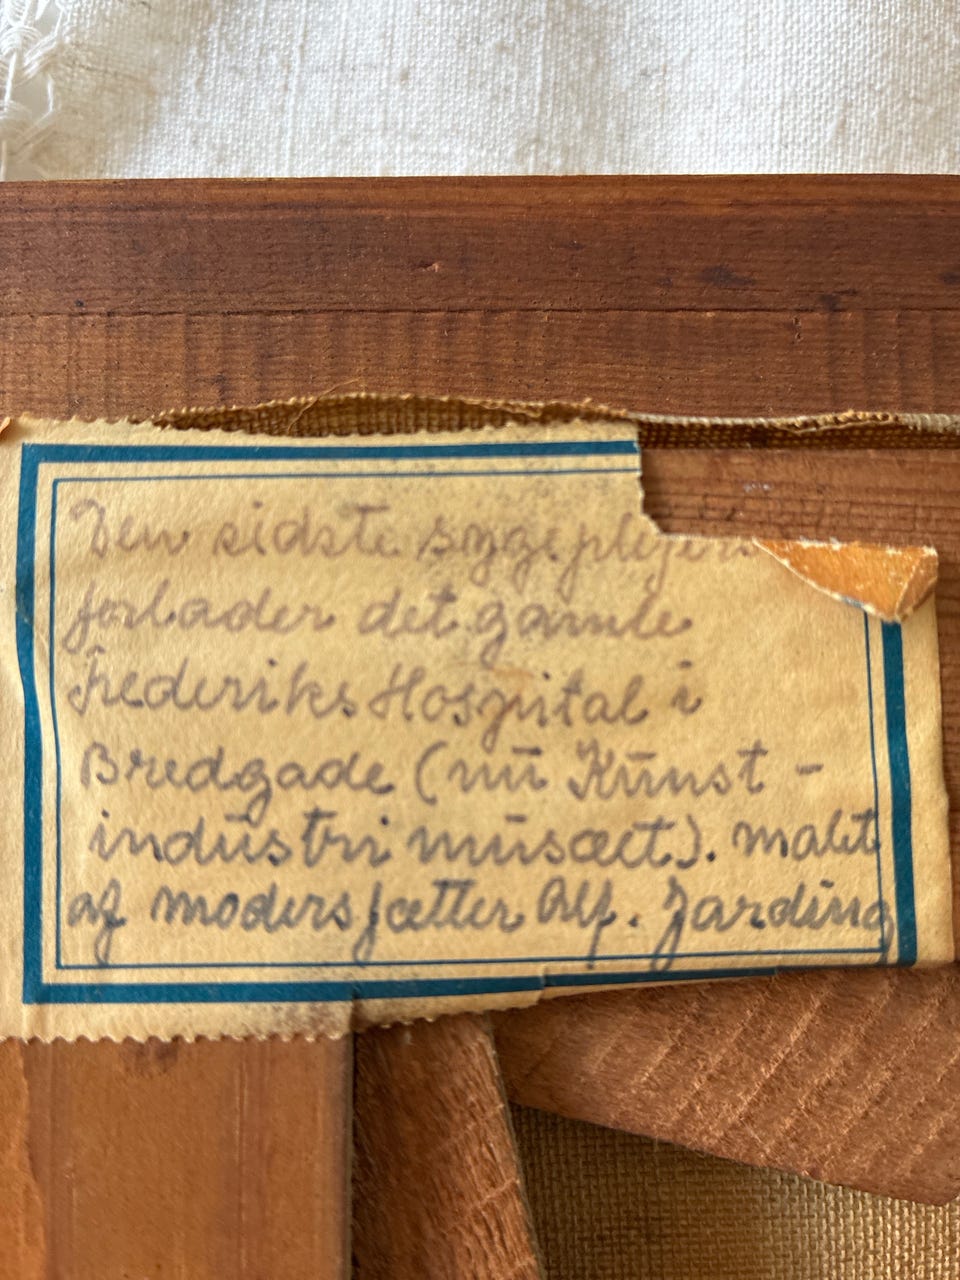 Den sidste sygeplejers
forlader det gamle
Frederiks Hospital i
Bredgade (nū Kūnst -
indūstri mūsæet). malet
af moders fætter Alf. Jarding